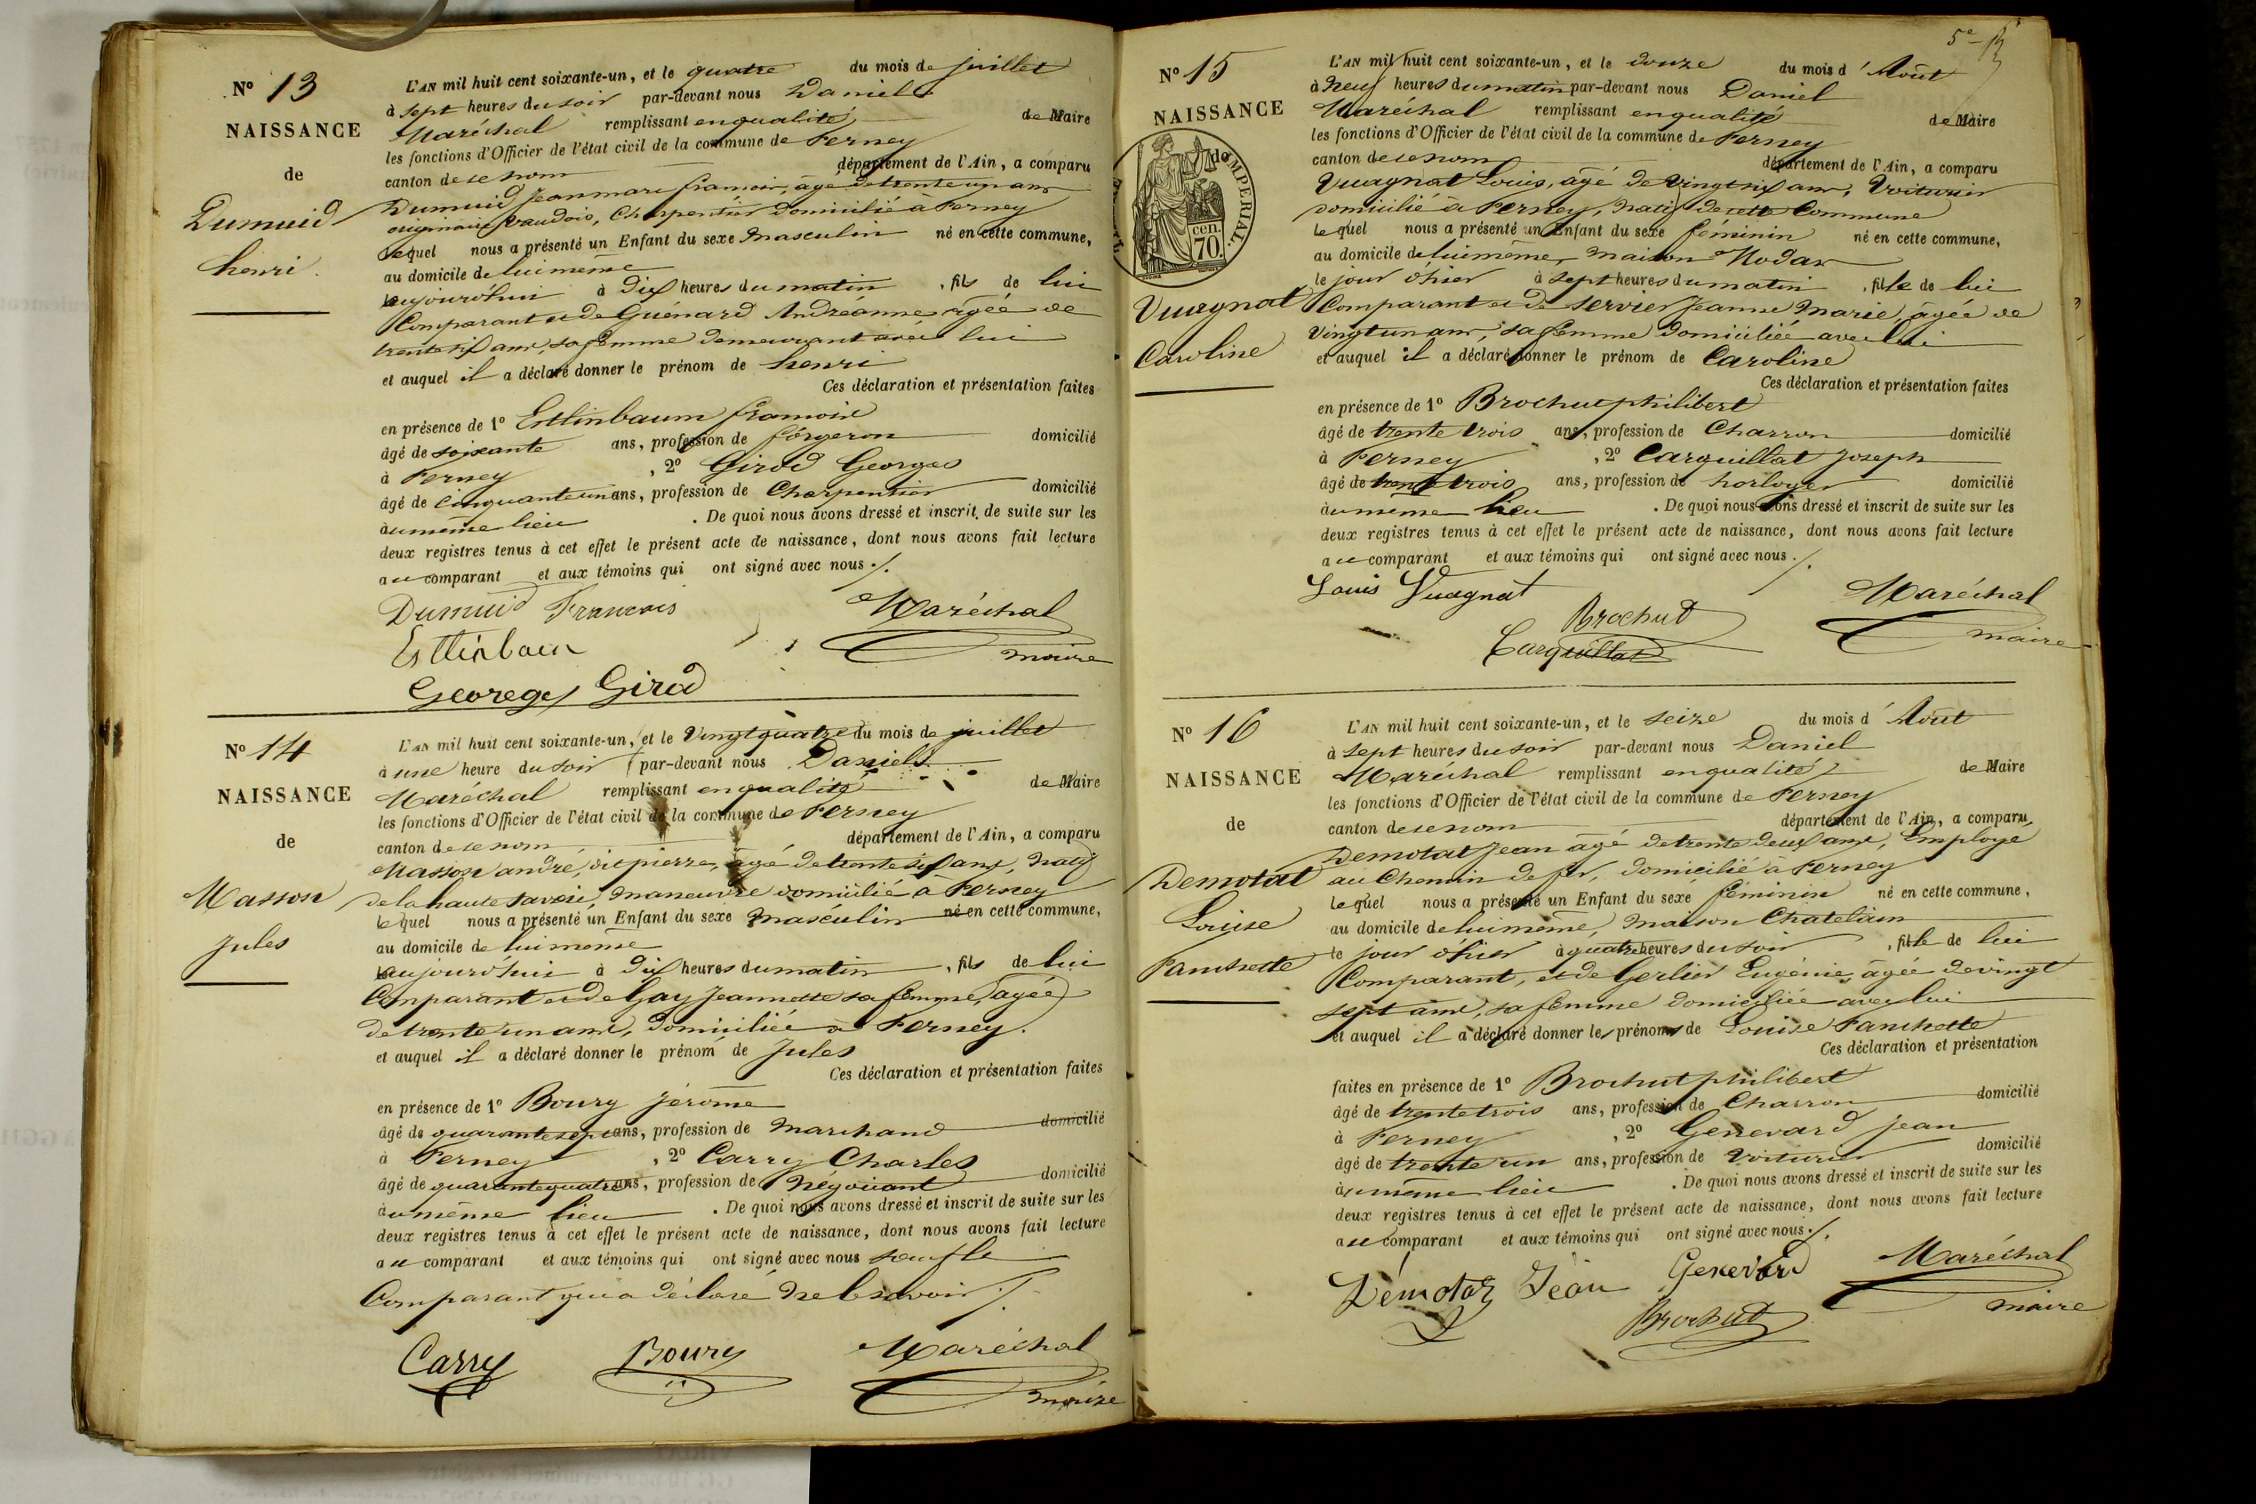 N° 13
NAISSANCE
de
Dumuid
henri.
L'AN mil huit cent soixante-un, et le quatre du mois de juillet
à sept heures du soir par-devant nous Daniel
Maréchal remplissant en qualité de Maire
les fonctions d'Officier de l'état civil de la commune de Ferney
canton de ce nom département de l'Ain, a comparu
Dumuid Jean marc françois, âgé de trente un ans
originaire vaudois, Charpentier domicilié à Ferney
lequel nous a présenté un Enfant du sexe masculin né en cette commune,
au domicile de lui même
aujourd'hui à dix heures du matin, fils de lui
Comparant et de Guénard Andréanne âgée de
trente six ans, sa femme demeurant avec lui
et auquel il a déclaré donner le prénom de henri
Ces déclaration et présentation faites
en présence de 1° Estlinbaum françois
âgé de soixante ans, profession de forgeron domicilié
à Ferney, 2° Girod Georges
âgé de cinquante un ans, profession de Charpentier domicilié
au même lieu. De quoi nous avons dressé et inscrit de suite sur les
deux registres tenus à cet effet le présent acte de naissance, dont nous avons fait lecture
au comparant et aux témoins qui ont signé avec nous ./.
Dumuid François Maréchal
maire
Georges Girod
N° 14
NAISSANCE
de
Masson
Jules
L'AN mil huit cent soixante-un, et le Vingt quatre du mois de juillet
à une heure du soir par-devant nous Daniel
Maréchal remplissant en qualité de Maire
les fonctions d'Officier de l'état civil de la commune de Ferney
canton de ce nom département de l'Ain, a comparu
Masson andré, dit pierre, âgé de trente six ans, natif
de la haute Savoie, manœuvre domicilié à Ferney
lequel nous a présenté un Enfant du sexe masculin né en cette commune,
au domicile de lui meme
aujourd'hui à dix heures du matin, fils de lui
Comparant et de Gay Jeannette sa femme, âgée
de trente un ans, domiciliée à Ferney.
et auquel il a déclaré donner le prénom de Jules
Ces déclaration et présentation faites
en présence de 1° Boury Jérome
âgé de quarante sept ans, profession de Marchand domicilié
à Ferney, 2° Carry Charles
âgé de quarante quatre ans, profession de Négociant domicilié
au même lieu. De quoi nous avons dressé et inscrit de suite sur les
deux registres tenus à cet effet le présent acte de naissance, dont nous avons fait lecture
au comparant et aux témoins qui ont signé avec nous sauf le
Comparant qui a déclaré ne le savoir ./.
Carry Boury Maréchal
maire
5e
N° 15
NAISSANCE
de
IMPERIAL.
cen.
70.
Vuagnat
Caroline
L'AN mil huit cent soixante-un, et le douze du mois d'Août
à neuf heures du matin par-devant nous Daniel
Maréchal remplissant en qualité de Maire
les fonctions d'Officier de l'état civil de la commune de Ferney
canton de ce nom département de l'Ain, a comparu
Vuagnat Louis, âgé de vingt six ans, Voiturier
domicilié à Ferney, natif de cette Commune
lequel nous a présenté un Enfant du sexe féminin né en cette commune,
au domicile de lui même, maison Nodar
le jour d'hier à sept heures du matin, fille de lui
Comparant et de Servier Jeanne Marie, âgée de
Vingt un ans, sa femme domiciliée avec lui
et auquel il a déclaré donner le prénom de Caroline
Ces déclaration et présentation faites
en présence de 1° Brochut philibert
âgé de trente trois ans, profession de Charron domicilié
à Ferney, 2° Carquillat Joseph
âgé de trente trois ans, profession de horloger domicilié
au même lieu. De quoi nous avons dressé et inscrit de suite sur les
deux registres tenus à cet effet le présent acte de naissance, dont nous avons fait lecture
au comparant et aux témoins qui ont signé avec nous ./.
Louis Vuagnat Maréchal
Brochut maire
Carquillat
N° 16
NAISSANCE
de
Demotat
Louise
Fanchette
L'AN mil huit cent soixante-un, et le seize du mois d'Août
à sept heures du soir par-devant nous Daniel
Maréchal remplissant en qualité de Maire
les fonctions d'Officier de l'état civil de la commune de Ferney
canton de ce nom département de l'Ain, a comparu
Demotat Jean âgé de trente deux ans, Employé
au Chemin de fer, domicilié à Ferney
lequel nous a présenté un Enfant du sexe féminin né en cette commune,
au domicile de lui même, maison Chatelain
le jour d'hier à quatre heures du soir, fille de lui
Comparant, et de Gerlier Eugénie âgée de vingt
sept ans, sa femme domiciliée avec lui
et auquel il a déclaré donner les prénoms de Louise Fanchette
Ces déclaration et présentation
faites en présence de 1° Brochut philibert
âgé de trente trois ans, profession de Charron domicilié
à Ferney, 2° Genevard Jean
âgé de trente un ans, profession de Voiturier domicilié
au même lieu. De quoi nous avons dressé et inscrit de suite sur les
deux registres tenus à cet effet le présent acte de naissance, dont nous avons fait lecture
au comparant et aux témoins qui ont signé avec nous ./.
Démotaz Jean Genevard Maréchal
Brochut maire